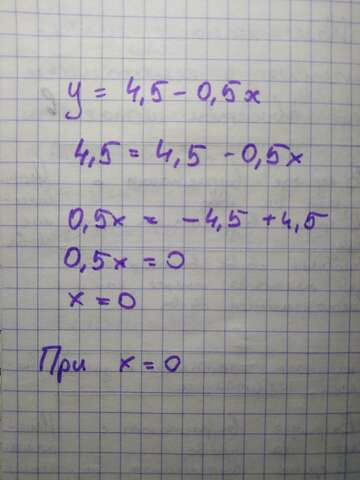 y = 4,5 - 0,5x
4,5 = 4,5 - 0,5x
0,5x = -4,5 + 4,5
0,5x = 0
x = 0
При x = 0